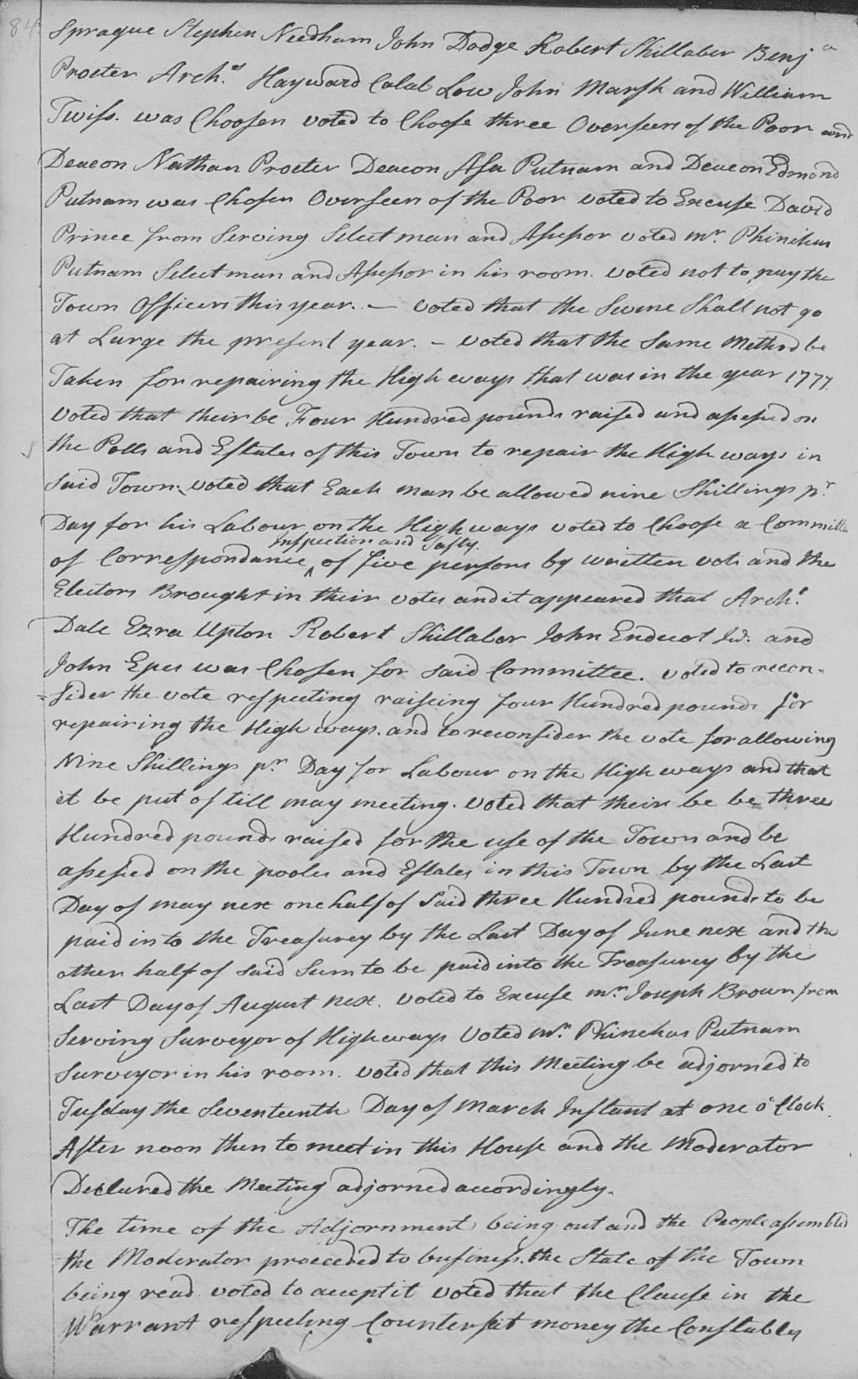 84
Sprague Stephen Needham John Dodge Robert Shillaber Benja
Procter Archs Hayward Calab Low John Marsh and William
Twiss. was Choosen voted to Choose three Overseers of the Poor and
Deacon Nathan Procter Deacon Asa Putnam and Deacon Edmond
Putnam was Chosen Overseers of the Poor voted to Excuse David
Prince from Serving Select man and Assessor voted mr. Phinehas
Putnam Select man and Assessor in his room. voted not to pay the
Town Officers this year. — voted that the Swine Shall not go
at Large the present year. — voted that the Same Method be
Taken for repairing the High ways that was in the year 1777.
voted that their be Four Hundred pounds raised and assessed on
the Polls and Estates of this Town to repair the High ways in
Said Town. voted that Each man be allowed nine Shillings pr.
Day for his Labour on the High ways voted to Choose a Committe
Inspection and Safty.
of Correspondance ^ of five persons by written vots and the
Electors Brought in their votes and it appeared that Archs
Dale Ezra Upton Robert Shillaber John Endecot Jur. and
John Epes was Chosen for Said Committee. voted to recon-
=sider the vote respecting raiseing four Hundred pounds for
repairing the High ways. and to reconsider the vote for allowing
Nine Shillings pr. Day for Labour on the High ways and that
it be put of till may meeting. voted that theirs be be three
Hundred pounds raised for the use of the Town and be
assessed on the pooles and Estates in this Town by the Last
Day of may next one half of Said three Hundred pounds to be
paid in to the Treasurey by the Last Day of June next and the
other half of Said Sum to be paid into the Treasurey by the
Last Day of August next. voted to Excuse mr. Joseph Brown from
Serving Surveyor of Highways Voted mr. Phinehas Putnam
Surveyor in his room. voted that this Meeting be adjorned to
Tusday the Seventeenth Day of March Instant at one o'Clock
After noon then to meet in this House and the Moderator
Declared the Meeting adjorned accordingly.
The time of the Adjornment being out and the People assembled
the Moderator proceeded to business. the State of the Town
being read voted to accept it voted that the Clause in the
Warrant respecting Counterfit money the Constables